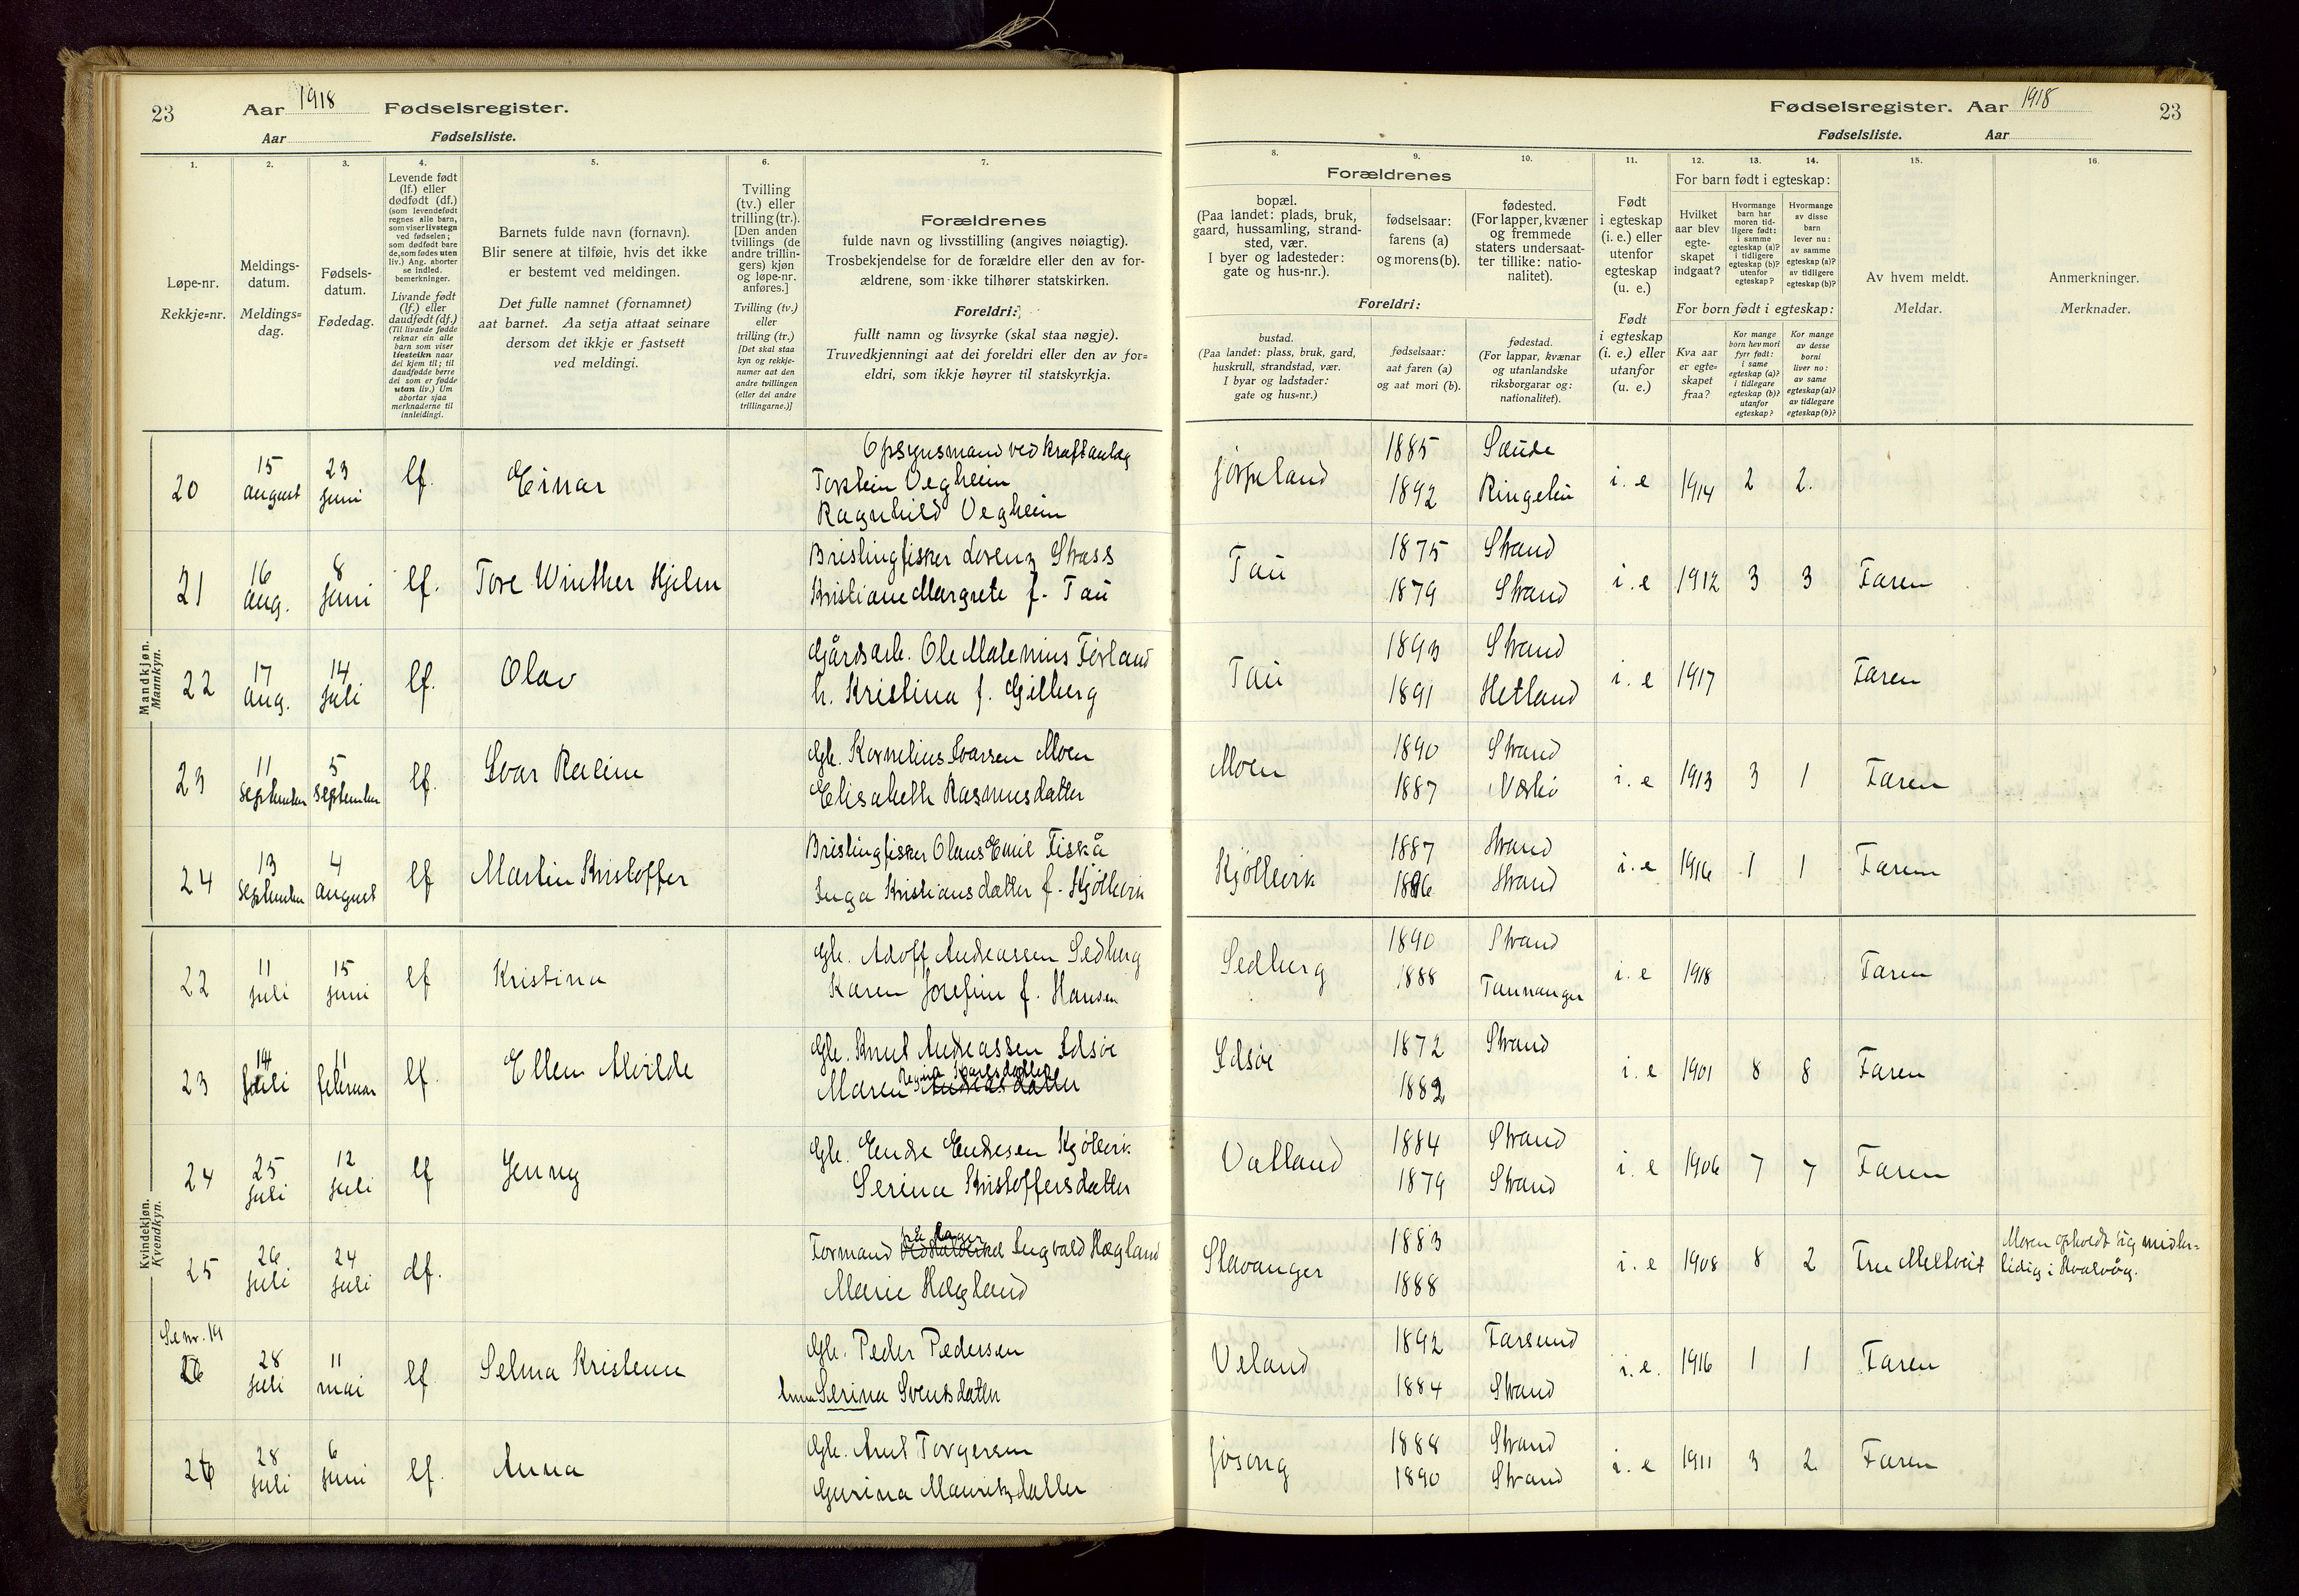 23 Aar 1918 Fødselsregister.
Aar Fødselsliste.
Fødselsregister. Aar 1918 23
Fødselsliste. Aar
1. 2. 3. 4. 5. 6. 7.
Løpe-nr.
Rekkje=nr.
Meldings-
datum.
Meldings=
dag.
Fødsels-
datum.
Fødedag.
Levende født
(lf.) eller
dødfødt (df.)
(som levendefødt
regnes alle barn,
som viser livstegn
ved fødselen;
som dødfødt bare
de, som fødes uten
liv.) Ang. aborter
se indled.
bemerkninger.
Livande født
(lf.) eller
daudfødt (df.)
(Til livande fødde
reknar ein alle
barn som viser
livsteikn naar
dei kjem til; til
daudfødde berre
dei som er fødde
utan liv.) Um
abortar sjaa
merknaderne til
innleidingi.
Barnets fulde navn (fornavn).
Blir senere at tilføie, hvis det ikke
er bestemt ved meldingen.
Det fulle namnet (fornamnet)
aat barnet. Aa setja attaat seinare
dersom det ikkje er fastsett
ved meldingi.
Tvilling
(tv.) eller
trilling (tr.).
[Den anden
tvillings (de
andre trillin-
gers) kjøn
og løpe-nr.
anføres.]
Tvilling (tv.)
eller
trilling (tr.)
[Det skal staa
kyn og rekkje-
numer aat den
andre tvillingen
(eller dei andre
trillingarne.)]
Forældrenes
fulde navn og livsstilling (angives nøiagtig).
Trosbekjendelse for de forældre eller den av for-
ældrene, som ikke tilhører statskirken.
Foreldri:
fullt namn og livsyrke (skal staa nøgje).
Truvedkjenningi aat dei foreldri eller den av for=
eldri, som ikkje høyrer til statskyrkja.
8. 9. 10. 11. 12. 13. 14. 15. 16.
Forældrenes
bopæl.
(Paa landet: plads, bruk,
gaard, hussamling, strand-
sted, vær.
I byer og ladesteder:
gate og hus-nr.).
fødselsaar:
farens (a)
og morens (b).
fødested.
(For lapper, kvæner
og fremmede
staters undersaat-
ter tillike: natio-
nalitet).
Foreldri:
bustad.
(Paa landet: plass, bruk, gard,
huskrull, strandstad, vær.
I byar og ladstader:
gate og hus=nr.)
fødselsaar:
aat faren (a)
og aat mori (b).
fødestad.
(For lappar, kvænar
og utanlandske
riksborgarar og:
nationalitet).
Født
i egteskap
(i. e.) eller
utenfor
egteskap
(u. e.)
Født
i egteskap
(i. e.) eller
utanfor
(u. e.)
For barn født i egteskap:
Hvilket
aar blev
egte-
skapet
indgaat?
Hvormange
barn har
moren tid-
ligere født:
i samme
egteskap (a)?
i tidligere
egteskap (b)?
utenfor
egteskap?
Hvormange
av disse
barn
lever nu:
av samme
egteskap (a)?
av tidligere
egteskap (b)?
For born født i egteskap:
Kva aar
er egte=
skapet
fraa?
Kor mange
born hev mori
fyrr født:
i same
egteskap (a)?
i tidlegare
egteskap (b)?
utanfor
egteskap?
Kor mange
av desse
borni
liver no:
av same
egteskap (a)?
av tidlegare
egteskap (b)?
Av hvem meldt.
Meldar.
Anmerkninger.
Merknader.
Mandkjøn.
Mannkyn.
20 15 august 23 juni lf. Einar
Opsynsmand ved kraftanlæg
Torstein Vegheim
Ragnhild Vegheim
Jørpeland 1885 Saude
1892 Ringebu
i. e 1914 2 2.
21 16 aug. 8 juni lf. Tore Winther Hjelm
Brislingfisker Lorenz Strass
Kristiane Margrete f. Tau
Tau 1875 Strand
1879 Strand
i. e 1912 3 3 Faren
22 17 aug. 14 juli lf. Olav
Gårdsarb. Ole Malenius Førland
h. Kristina f. Gilberg
Tau 1893 Strand
1891 Hetland
i. e 1917 Faren
23 11 september 5 september lf. Ivar
Gbr. Kornelius Ivarsen Moen
Elisabeth Rasmusdatter
Moen 1890 Strand
1887
i. e 1913 3 1 Faren
24 13 september 4 august lf Martin Kristoffer
Brislingfisker Olaus Emil Fiskå
Inga Kristiansdatter f. Kjøllevik
Kjøllevik 1887 Strand
1896 Strand
i. e 1916 1 1 Faren
Kvindekjøn.
Kvendkyn.
22 11 juli 15 juni lf Kristina
Gbr. Adolf Andreassen Sedberg
Karen Josefine f. Hansen
Sedberg 1890 Strand
1888 Tananger
i. e 1918 Faren
23 14 juli 11 februar lf. Ellen Alvilde
Gbr. Knut Andreassen Idsøe
Maren Regina
Idsøe 1872 Strand
1882
i. e 1901 8 8 Faren
24 25 juli 12 juli lf Jenny
Gbr. Endre Endresen Kjølevik
Serina Kristoffersdatter
Vatland 1884 Strand
1879 Strand
i. e 1906 7 7 Faren
25 26 juli 24 juli df.
på lager
Formand Ingvald Høgland
Marie Høgland
Stavanger 1883
1888
i. e 1908 8 2 Fru Meltveit
Moren opholdt sig midler=
tidig i Hvalvåg.
Se nr. 19
26 28 juli 11 mai lf. Selma Kristense
Gbr. Peder Pedersen
hmr Serina Svensdatter
Veland 1892 Farsund
1884 Strand
i. e. 1916 1 1 Faren
26 28 juli 6 juni lf. Anna
Gbr. Arnt Torgersen
Gurina Mauritzdatter
Jøsong 1888 Strand
1890 Strand
i. e 1911 3 2 Faren